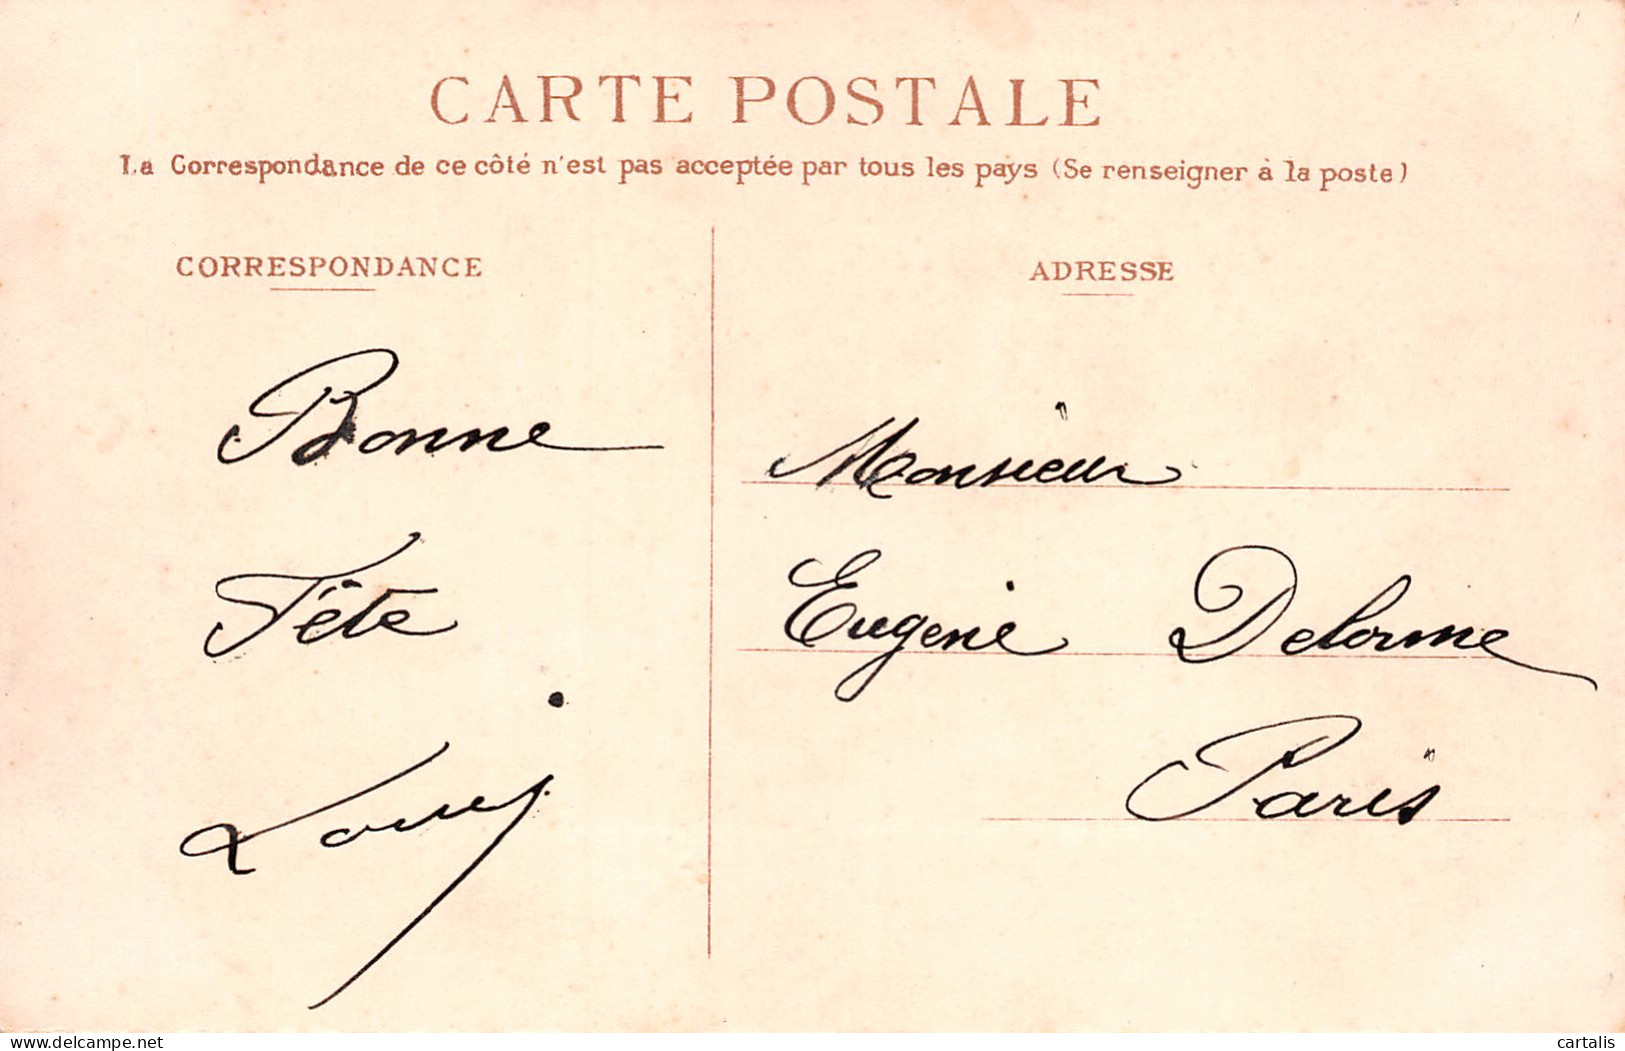 CARTE POSTALE
La Correspondance de ce côté n'est pas acceptée par tous les pays (Se renseigner à la poste)
CORRESPONDANCE
Bonne
Fête
Louis
ADRESSE
Monsieur
Eugène Delorme
Paris
delcampe.net
cartalis